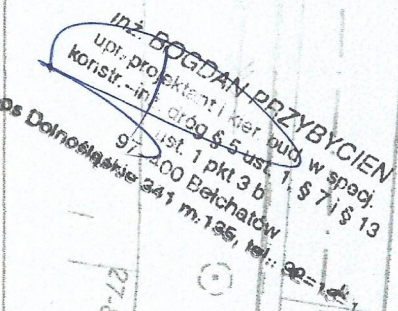 inż. BOGDAN PRZYBYCIEN
upr. projektant i kier. bud. w spacj.
konstr.-inż. dróg § 5 ust. 1, § 7 i § 13
ust. 1 pkt 3 b
97-400 Bełchatów
os Dolnośląskie 341 m. 135, tel.:
27-